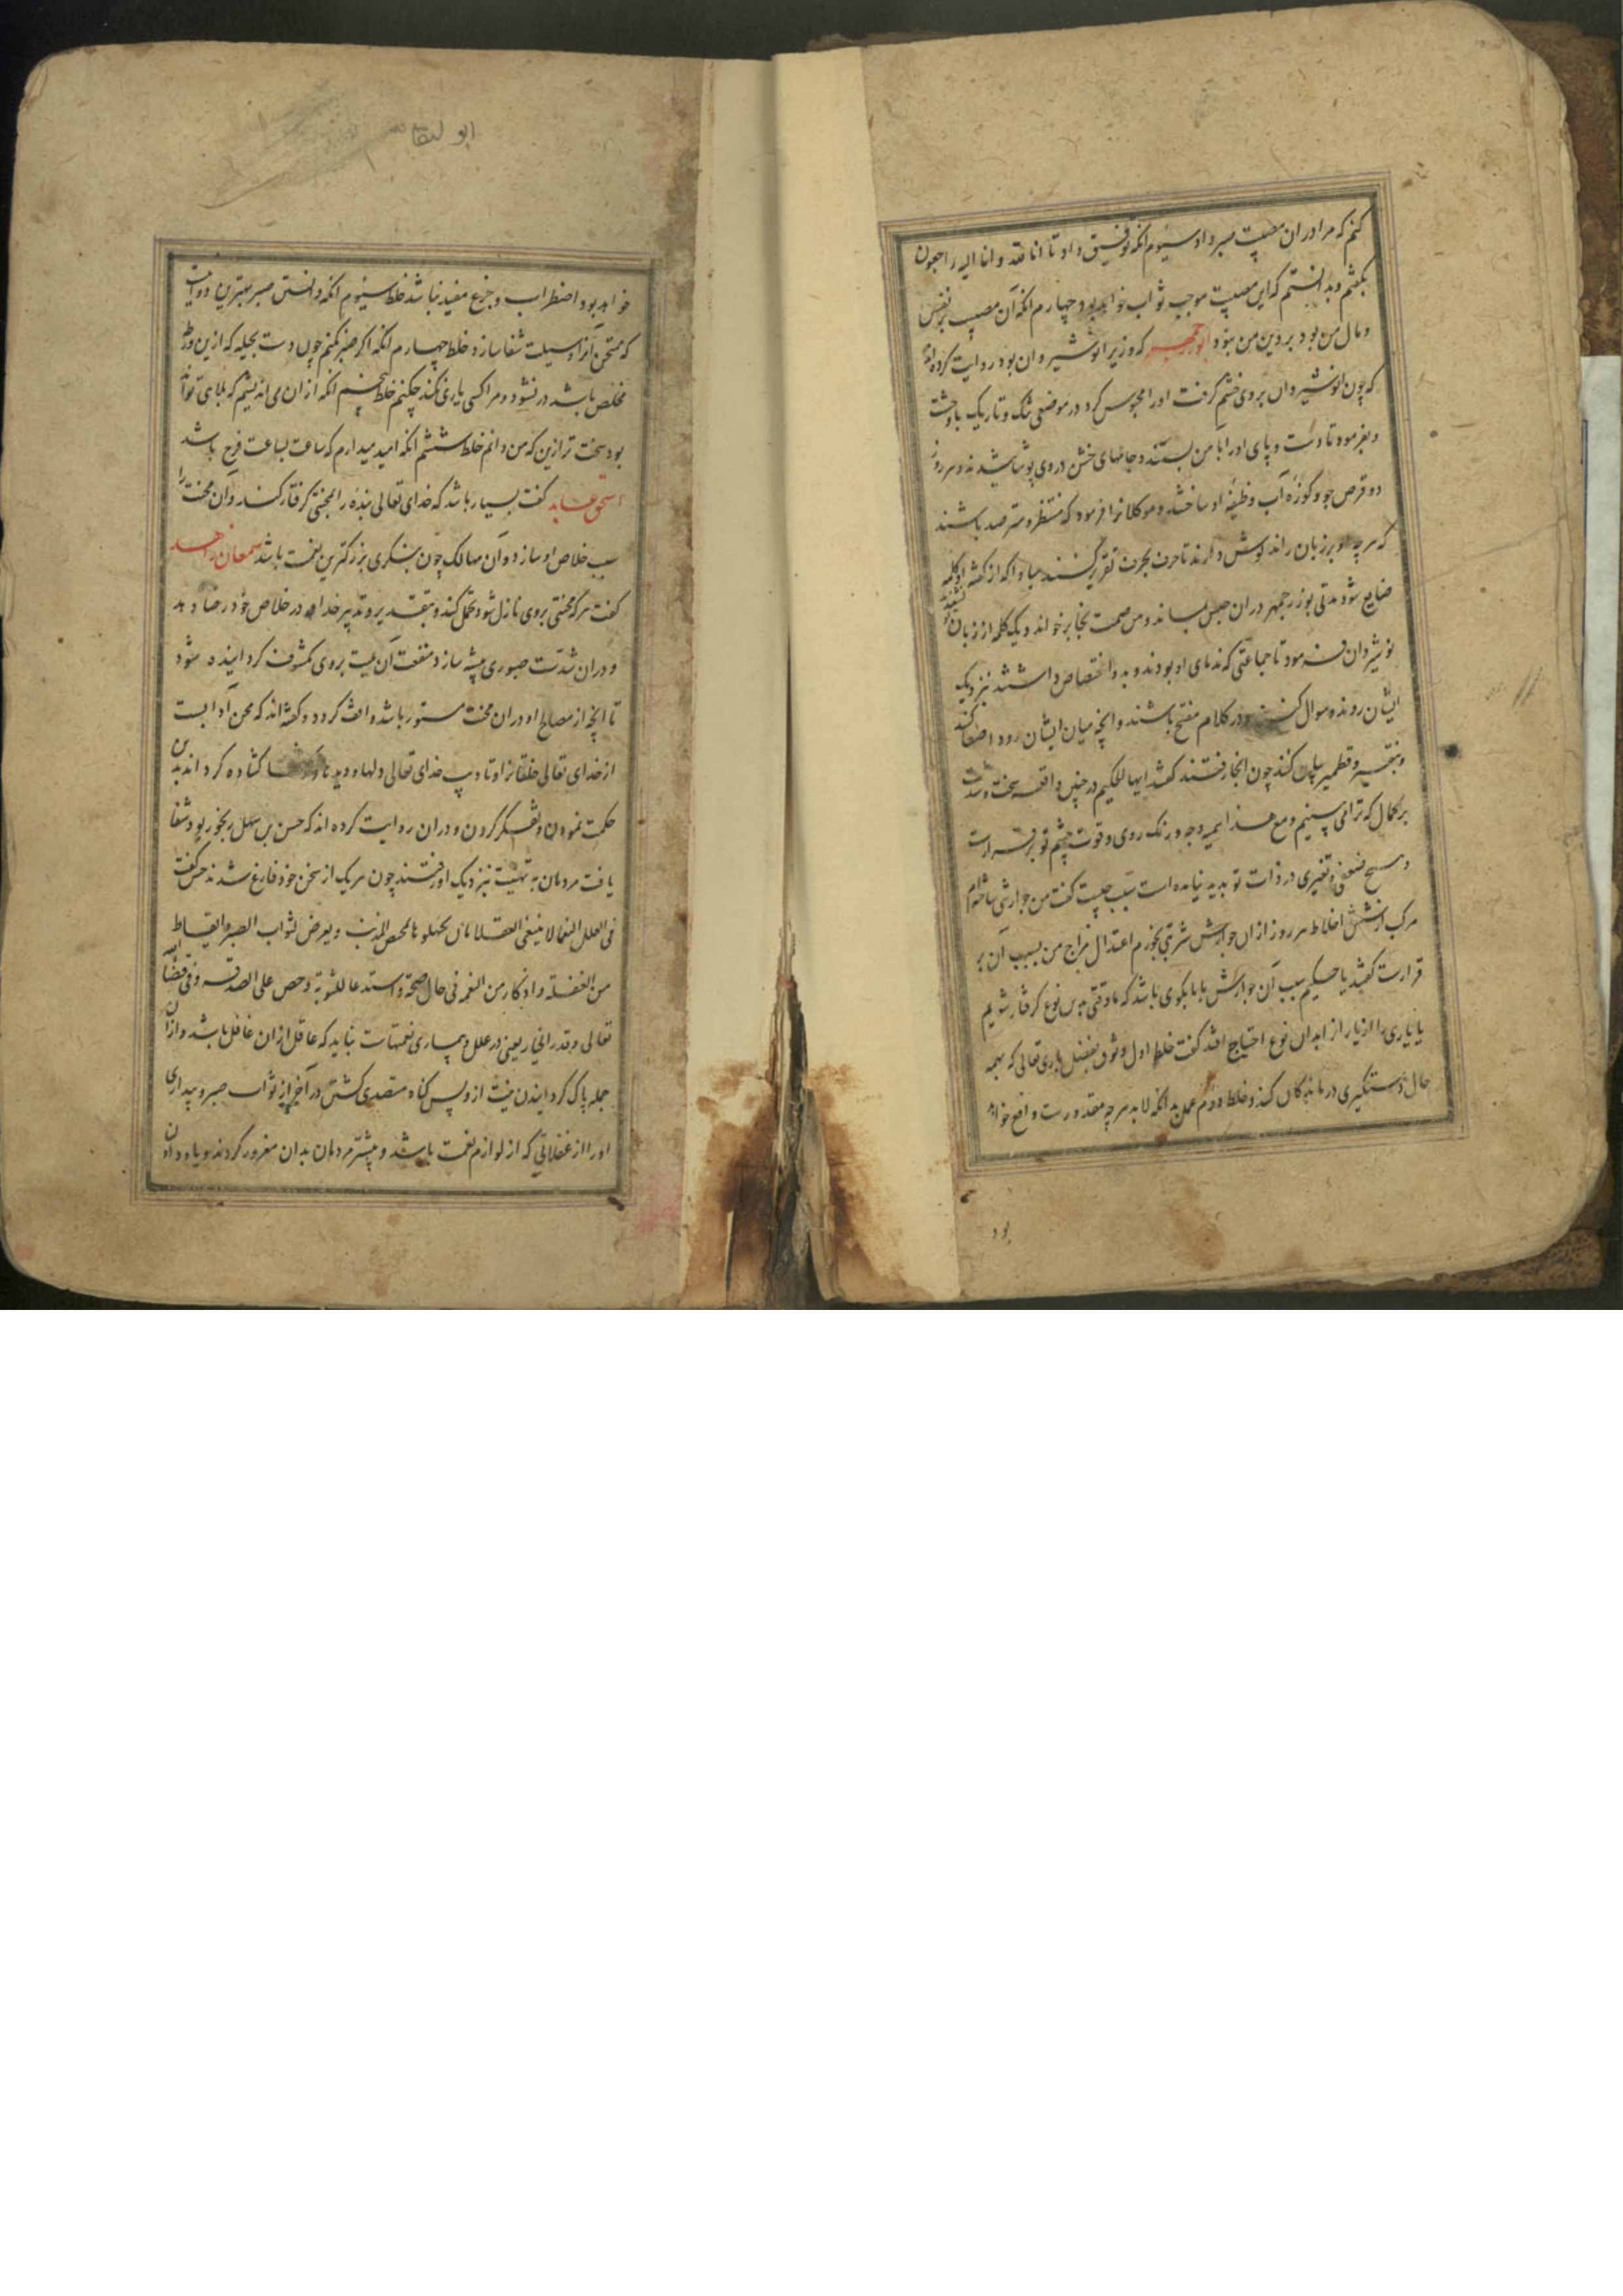 کنم که مرا در ان مصیبت صبر داد سیوم انکه توفیق داد تا انا لله و انا الیه راجعون
بکفتم و بدانستم که این مصیبت موجب ثواب خواهد بود چهارم انکه آن مصیبت بر نفس
و مال من بود بر دین من نبود ابوزرجمهر که وزیر انوشیروان بود روایت کرده اند
که چون انوشیروان بر وی خشم کرفت اورا محبوس کرد در موضعی تنک و تاریک با وحشت
و بفرمود تا دست و پای اورا باهن بستند و جامهای خشن در وی پوشانیدند و هر روز
دو قرص جو و کوزه آب وظیفه او ساختند و موکلانرا فرمود که منتظر و مترصد باشند
که هر چه او بر زبان راند کوش دارند تا حرف بحرف تقریر کنند مبادا که از کفته او کلمه
ضایع شود مدتی بوزرجمهر دران حبس بماند و من صمت نجا بر خواند و یک کلمه از زبان او نشنیدند
نوشیروان فرمود تا جماعتی که ندمای او بودند و بدو اختصاص داشتند نزدیک
ایشان روند و سوال کنند و در کلام مفتح باشند و انچه میان ایشان رود اصغا کنند
و بنقیر و قطمیر بیان کنند چون انجا رفتند کفتند ایها الحکیم در چنین واقعه سخت و شدت
بر کمال که ترا می بینیم و مع هذا بهمه وجه رنک روی و قوت چشم تو بر قرارست
و هیچ ضعفی و تغیری در ذات تو پدید نیامده است سبب چیست کفت من جوارشی ساخته ام
مرکب از شش اخلاط هر روز ازان جوارش شربتی بخورم اعتدال مزاج من بسبب آن بر
قرارست کفتند یا حکیم سبب آن جوارش با ما بکوی باشد که ما وقتی بدین نوع کرفتار شویم
یا یاری را از یاران ما بدان نوع احتیاج افتد کفت خلط اول وثوق بفضل باری تعالی که بهمه
حال دستکیری درماندکان کند و خلط دوم عمل به انکه لابد هر چه مقدورست واقع خواهد
بود
ابو لقا
خواهد بود و اضطراب و جزع مفید نباشد خلط سیوم انکه دانستن صبر بهترین دواییست
که ممتحن آنرا وسیلت شفا سازد خلط چهارم انکه اکر صبر نکنم چون دست بحیله که ازین ورطه
مخلص باشد در نشود و مرا کسی یاری نکند چکنم خلط پنجم انکه ازان می اندیشم که بلایی تواند
بود سخت تر ازین که من دانم خلط ششم انکه امید میدارم که ساعت بساعت فرج باشد
اسحق عابد کفت بسیار باشد که خدای تعالی بنده را بمحنتی کرفتار کند و آن محنت را
سبب خلاص او سازد و آن مهالک چون بنکری بزرکترین نعمت باشد سمعان زاهد
کفت هر که محنتی بر وی نازل شود تحمل کند و بتقدیر و تدبیر خدای در خلاص خود رضا دهد
و دران شدت صبوری پیشه سازد منفعت آن بلیت بر وی مکشوف کردانیده شود
تا انچه از مصالح او دران محنت مستور باشد واقف کردد و کفته اند که محن آدابست
از خدای تعالی خلقانرا و تادیب خدای تعالی دلها و دید کشاده کرداند بدین
حکمت نمودن و تفکر کردن و دران روایت کرده اند که حسن بن سهل رنجور بود شفا
یافت مردمان به تهنیت نزدیک او رفتند چون هر یک از سخن خود فارغ شدند حسن کفت
فی العلل لنعما لا ینبغی للعقلا ان یجهلوها تمحیص الذنب و یعرض لثواب الصبر و ایقاظ
من الغفلة و اذکار من النعم فی حال الصحة و استدعا للثوبة و حص علی الصدقه و فی قضاء الله
تعالی و قدره الخیار یعنی در علل و بیماری نعمتهاست نباید که عاقل ازان غافل باشد و ازان
جمله پاک کردانیدن نیت از ویس کناه متصدی کشتن در آخر از ثواب صبر و بیداری
اورا از غفلاتی که از لوازم نعمت باشد و بیشتر مردمان بدان مغرور کردند و یاد دادن